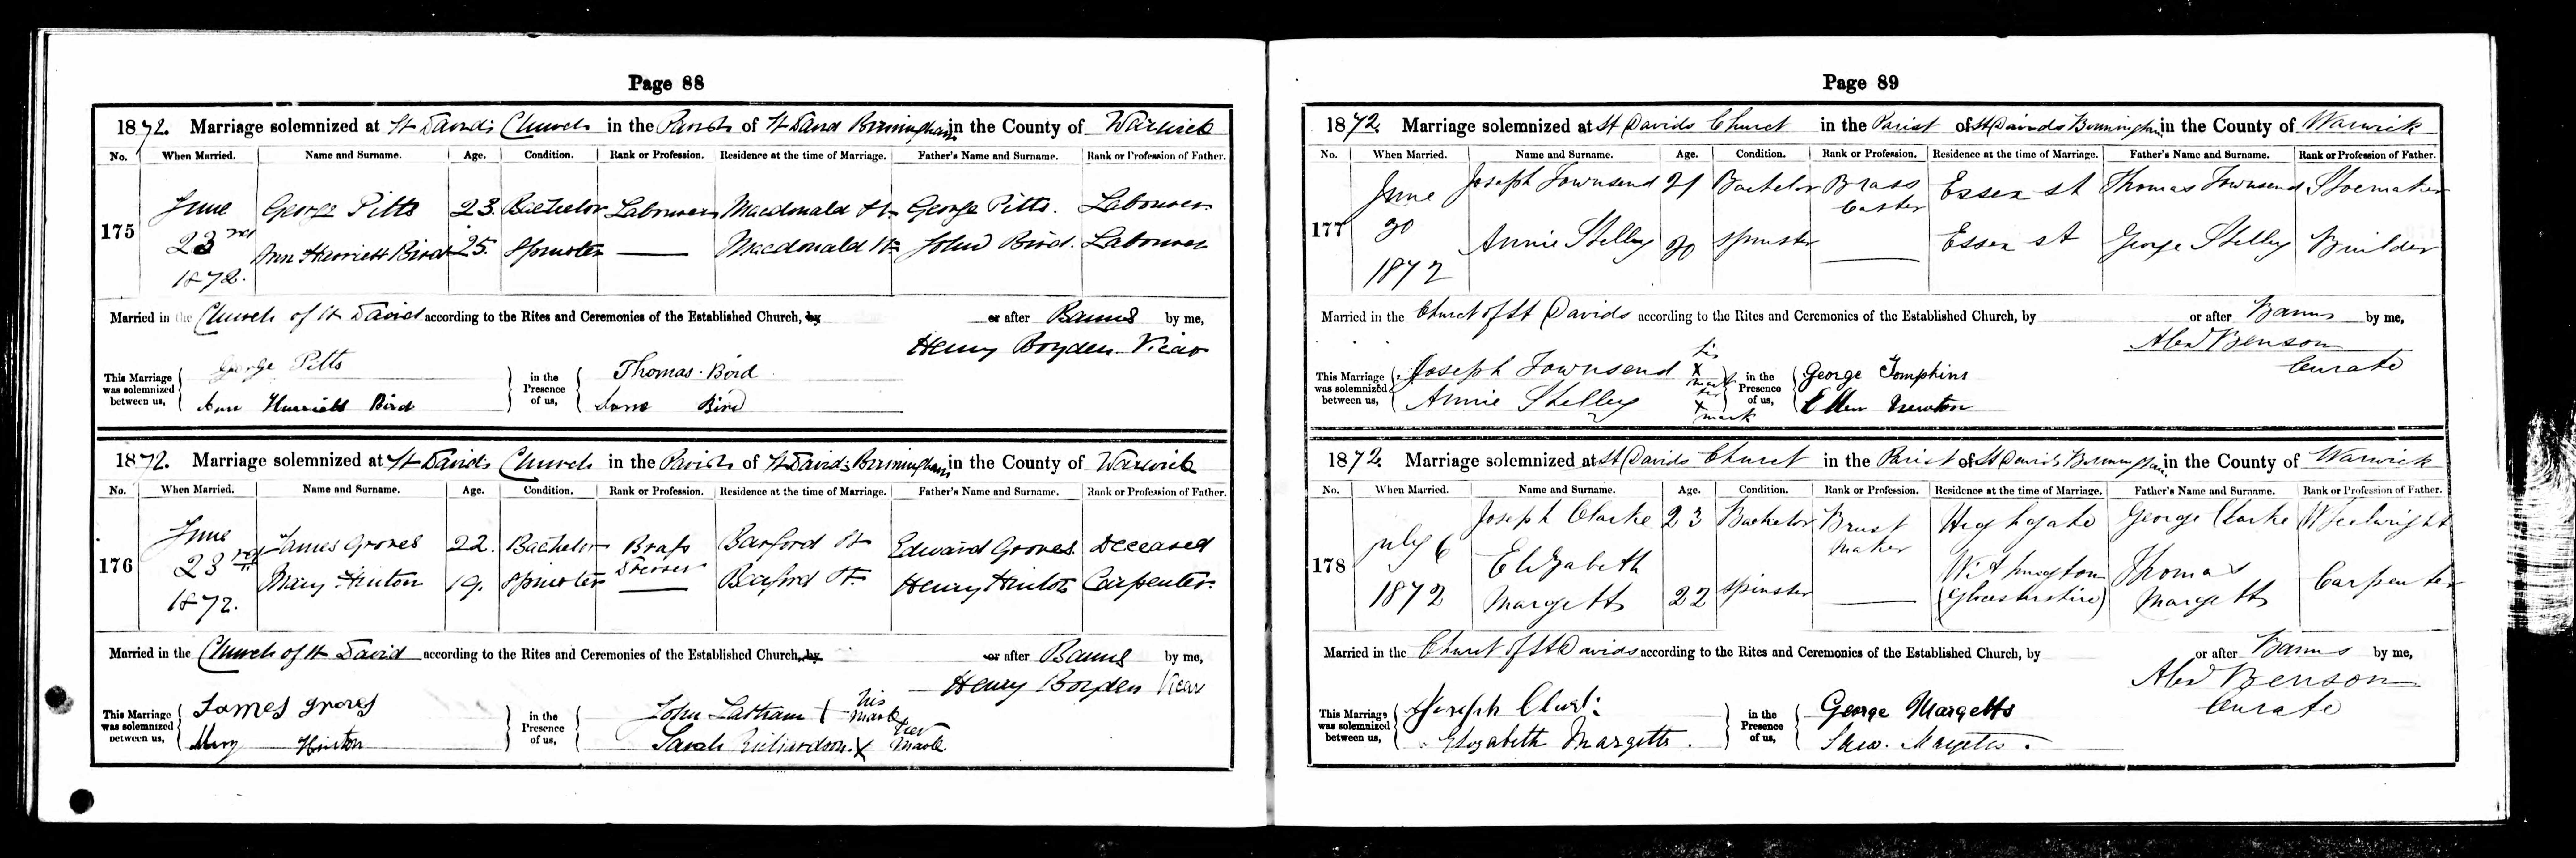 Page 88
1872. Marriage solemnized at St Davids Church in the Parish of St David Birmingham in the County of Warwick
No. When Married. Name and Surname. Age. Condition. Rank or Profession. Residence at the time of Marriage. Father's Name and Surname. Rank or Profession of Father.
175 June 23rd 1872. George Pitts 23. Bachelor Labourer Macdonald St George Pitts. Labourer
Ann Harriett Bird 25. Spinster Macdonald St John Bird. Labourer
Married in the Church of St David according to the Rites and Ceremonies of the Established Church, by or after Banns by me,
Henry Boyden. Vicar
This Marriage was solemnized between us, George Pitts in the Presence of us, Thomas Bird
Ann Harriett Bird Bird
1872. Marriage solemnized at St Davids Church in the Parish of St Davids Birmingham in the County of Warwick
No. When Married. Name and Surname. Age. Condition. Rank or Profession. Residence at the time of Marriage. Father's Name and Surname. Rank or Profession of Father.
176 June 23rd 1872. James Groves 22. Bachelor Brass Dresser Barford St Edward Groves. Deceased
Mary Hinton 19. Spinster Barford St. Henry Hinton Carpenter.
Married in the Church of St David according to the Rites and Ceremonies of the Established Church, by or after Banns by me,
Henry Boyden Vicar
This Marriage was solemnized between us, James Groves in the Presence of us, John Latham his mark
Mary Hinton Sarah Richardson X her mark
Page 89
1872. Marriage solemnized at St Davids Church in the Parish of St Davids Birmingham in the County of Warwick
No. When Married. Name and Surname. Age. Condition. Rank or Profession. Residence at the time of Marriage. Father's Name and Surname. Rank or Profession of Father.
177 June 30 1872 Joseph Townsend 21 Bachelor Brass Caster Essex st Thomas Townsend Shoemaker
Annie Shelley 20 Spinster Essex st George Shelley Builder
Married in the Church of St Davids according to the Rites and Ceremonies of the Established Church, by or after Banns by me,
Alexd Benson
Curate
This Marriage was solemnized between us, Joseph Townsend his X mark in the Presence of us, George Tompkins
Annie Shelley her X mark Ellen Newton
1872. Marriage solemnized at St Davids Church in the Parish of St Davids Birmingham in the County of Warwick
No. When Married. Name and Surname. Age. Condition. Rank or Profession. Residence at the time of Marriage. Father's Name and Surname. Rank or Profession of Father.
178 July 6 1872 Joseph Clarke 23 Bachelor maker Highgate George Clarke Wheelwright
Elizabeth Margetts 22 Spinster Withington (Glocestershire) Thomas Margetts Carpenter
Married in the Church of St Davids according to the Rites and Ceremonies of the Established Church, by or after Banns by me,
Alexd Benson
Curate
This Marriage was solemnized between us, Joseph in the Presence of us, George Margetts
Elizabeth Margetts. Margetts.